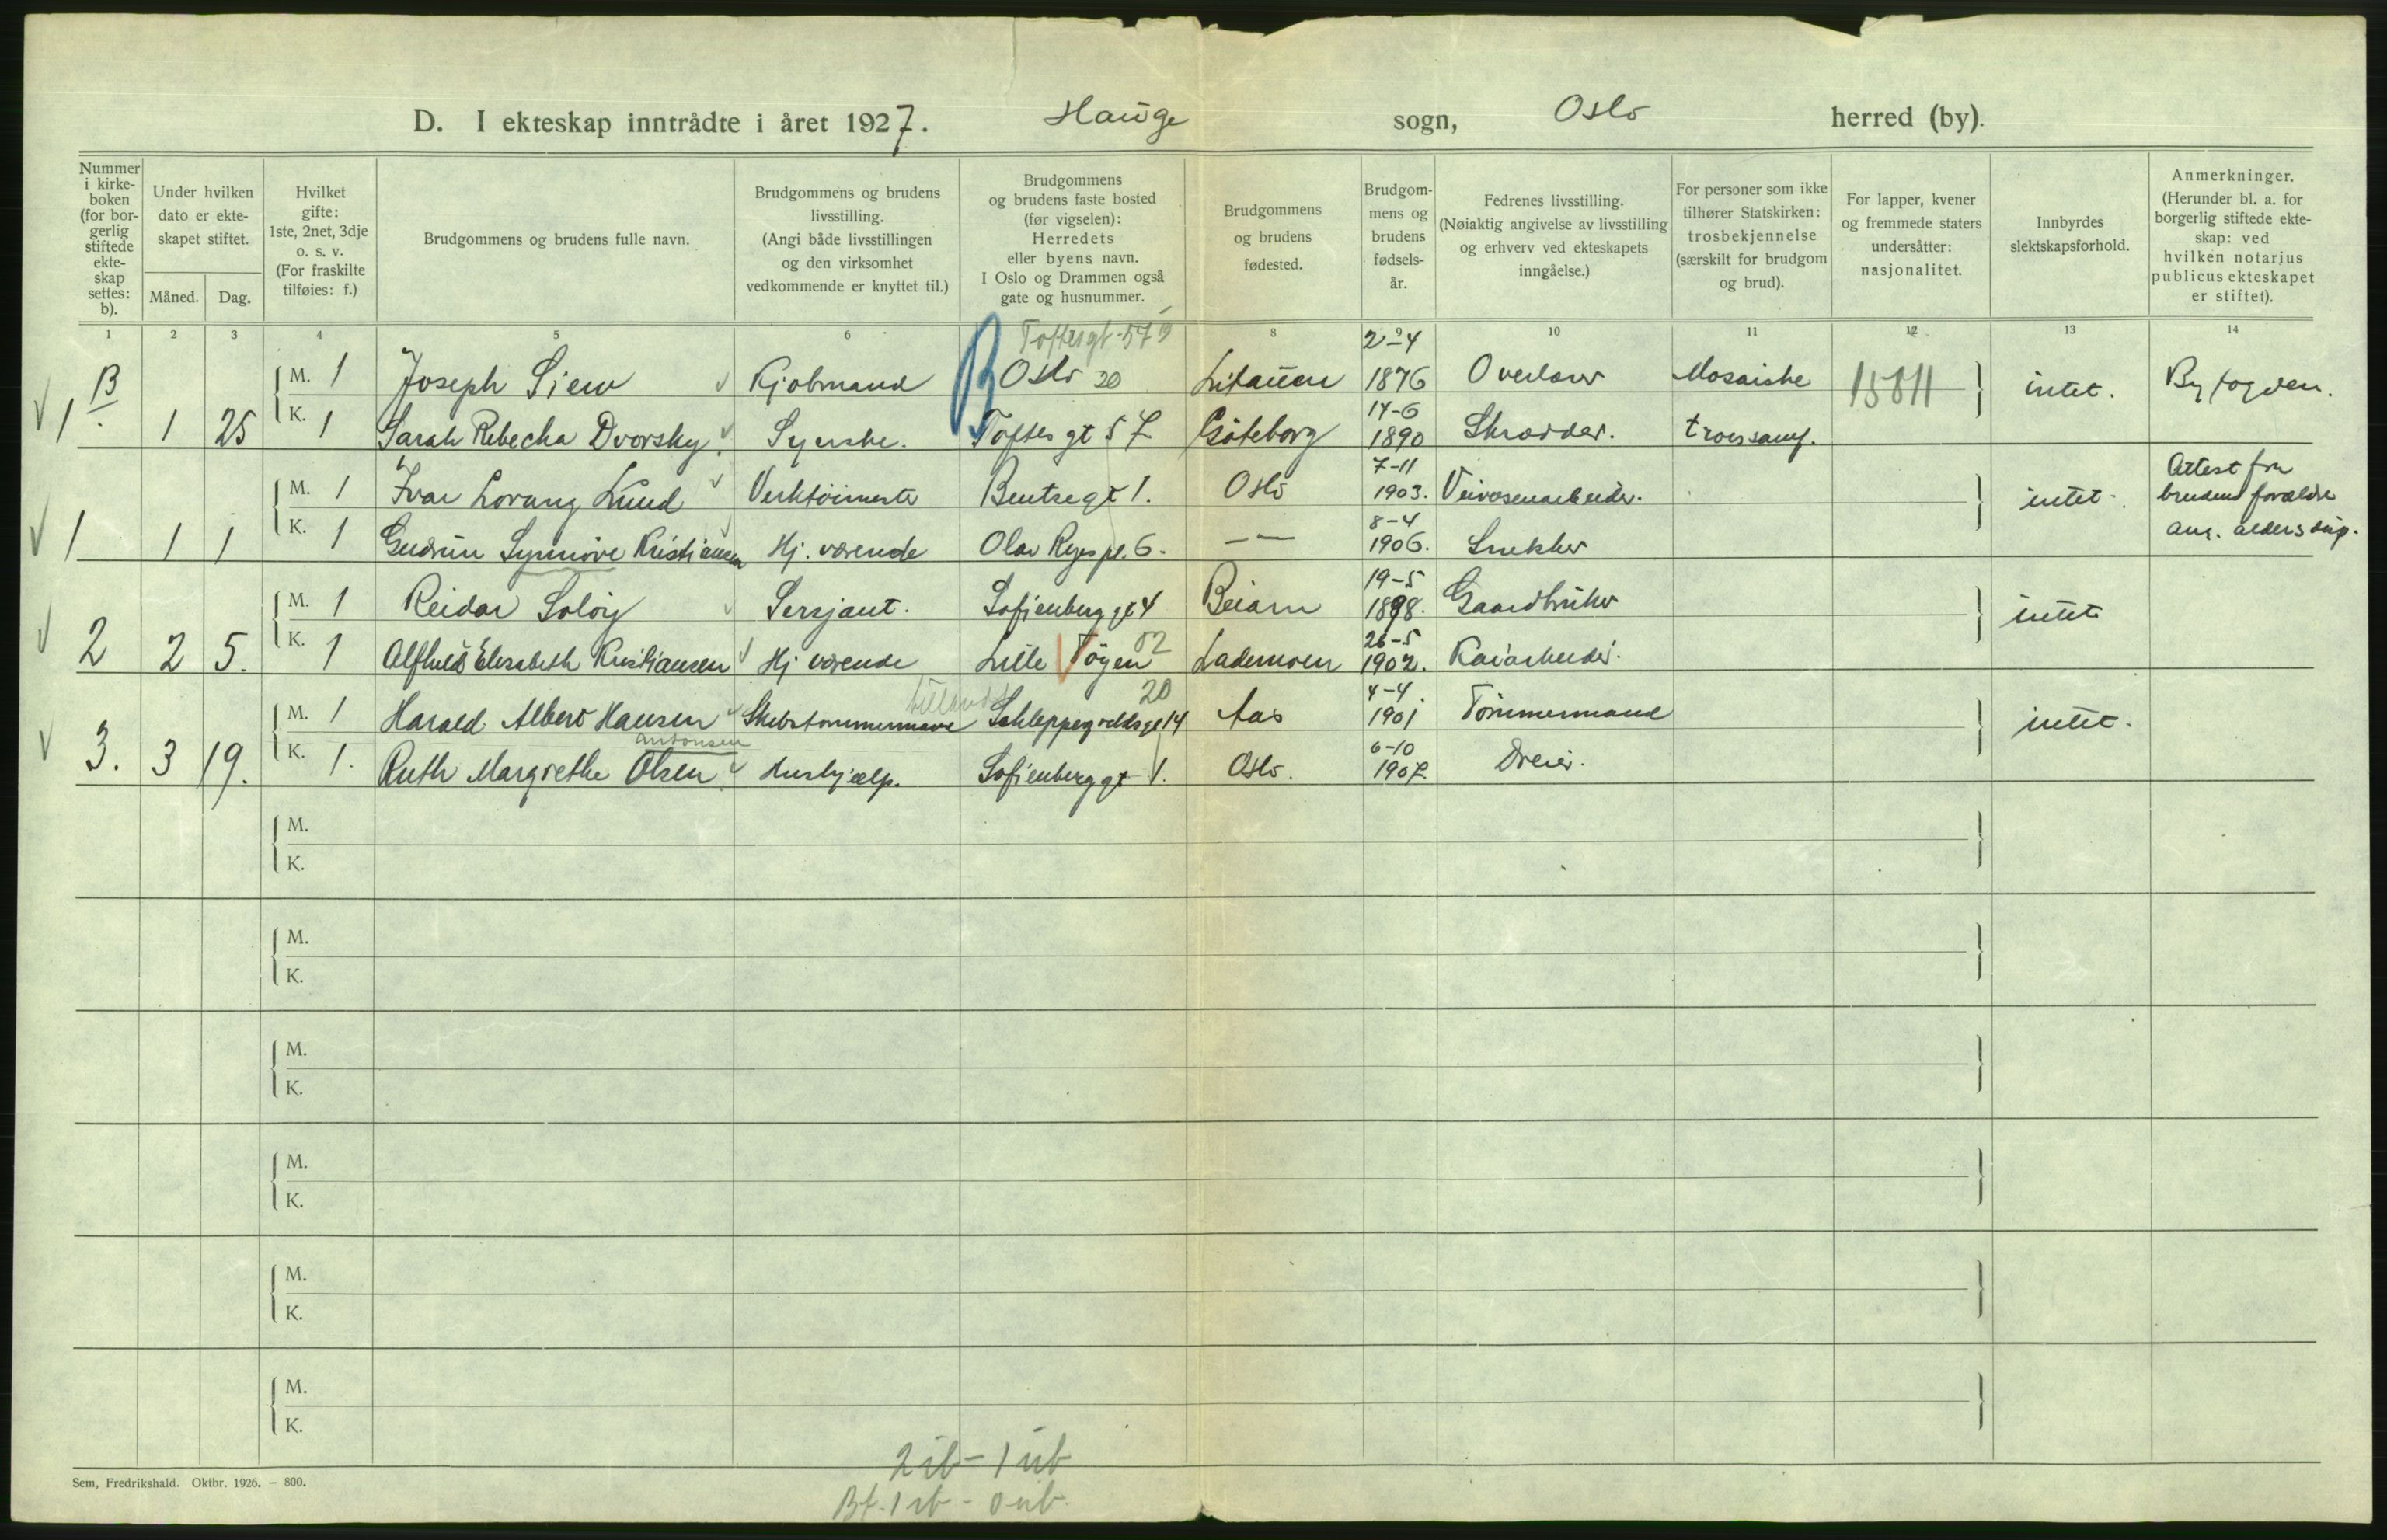 D. I ekteskap inntrådte i året 1927. Hauge sogn, Oslo herred (by).
Nummer i kirke-boken (for bor-gerlig stiftede ekte-skap settes: b).
Under hvilken dato er ekte-skapet stiftet.
Måned. Dag.
Hvilket gifte: 1ste, 2net, 3dje o. s. v. (For fraskilte tilføies: f.)
Brudgommens og brudens fulle navn.
Brudgommens og brudens livsstilling. (Angi både livsstillingen og den virksomhet vedkommende er knyttet til.)
Brudgommens og brudens faste bosted (før vigselen): Herredets eller byens navn. I Oslo og Drammen også gate og husnummer.
Brudgommens og brudens fødested.
Brudgom-mens og brudens fødsels-år.
Fedrenes livsstilling. (Nøiaktig angivelse av livsstilling og erhverv ved ekteskapets inngåelse.)
For personer som ikke tilhører Statskirken: trosbekjennelse (særskilt for brudgom og brud).
For lapper, kvener og fremmede staters undersåtter: nasjonalitet.
Innbyrdes slektskapsforhold.
Anmerkninger. (Herunder bl. a. for borgerlig stiftede ekte-skap: ved hvilken notarius publicus ekteskapet er stiftet).
1 2 3 4 5 6 8 10 11 12 13 14
Toftesgt. 57 2-4
B M. 1 Joseph Siew Kjøbmand B Oslo 20 Litauen 1876 Overlærer Mosaiske 15811 intet. Byfogden.
14-6
1 1 25 K. 1 Sarah Rebecka Dvorsky Syerske. Toftes gt 57 Göteborg 1890 Skrædder. troessamf.
7-11 Attest fra
M. 1 Ivar Lorang Lund Verktöimester Bentsegt 1. Oslo 1903. Veivæsenarbeider. intet. brudens forældre
8-4
1 1 1 K. 1 Gudrun Synnöve Kristiansen Hj. værende Olav Ryes pl. 6. — — 1906. Snekker ang. aldersdisp.
19-5
M. 1 Reidar Solöy Sersjant. Sofienberg gt 4 Beiarn 1898. Gaardbruker intet
52 26-5
2 2 5. K. 1 Alfhild Elisabeth Kristiansen Hj værende Lille Töyen Lademoen 1902. Kaiarbeider.
20 4-4
M. 1 Harald Albert Hansen Skibstømmermand Schleppegrellsgt 14 Aas 1901 Tömmermand intet.
Antonsen 6-10
3. 3 19. K. 1. Ruth Margrethe Olsen Hushjælp. Sofienberggt 1. Oslo. 1907. Dreier.
M.
K.
M.
K.
M.
K.
M.
K.
M.
K.
M.
K.
Sem, Fredrikshald. Oktbr. 1926. — 800.
2 ib - 1 ub
Bf. 1 ib - 0 ub.